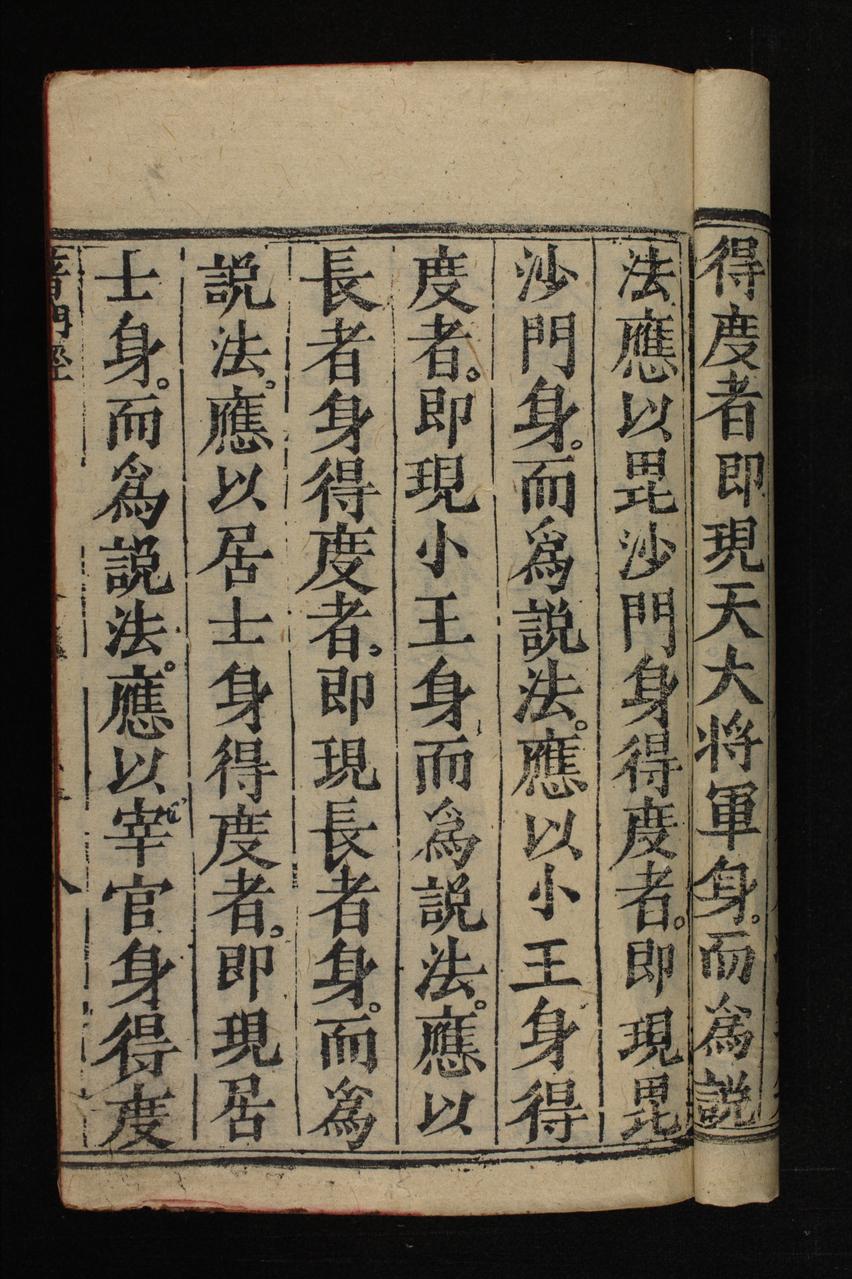 得度者即現天大將軍身。而爲說
法應以毘沙門身得度者。即現毘
沙門身。而爲說法。應以小王身得
度者。即現小王身而爲說法。應以
長者身得度者。即現長者身。而爲
說法。應以居士身得度者。即現居
士身。而爲說法。應以宰官身得度
普門經
八